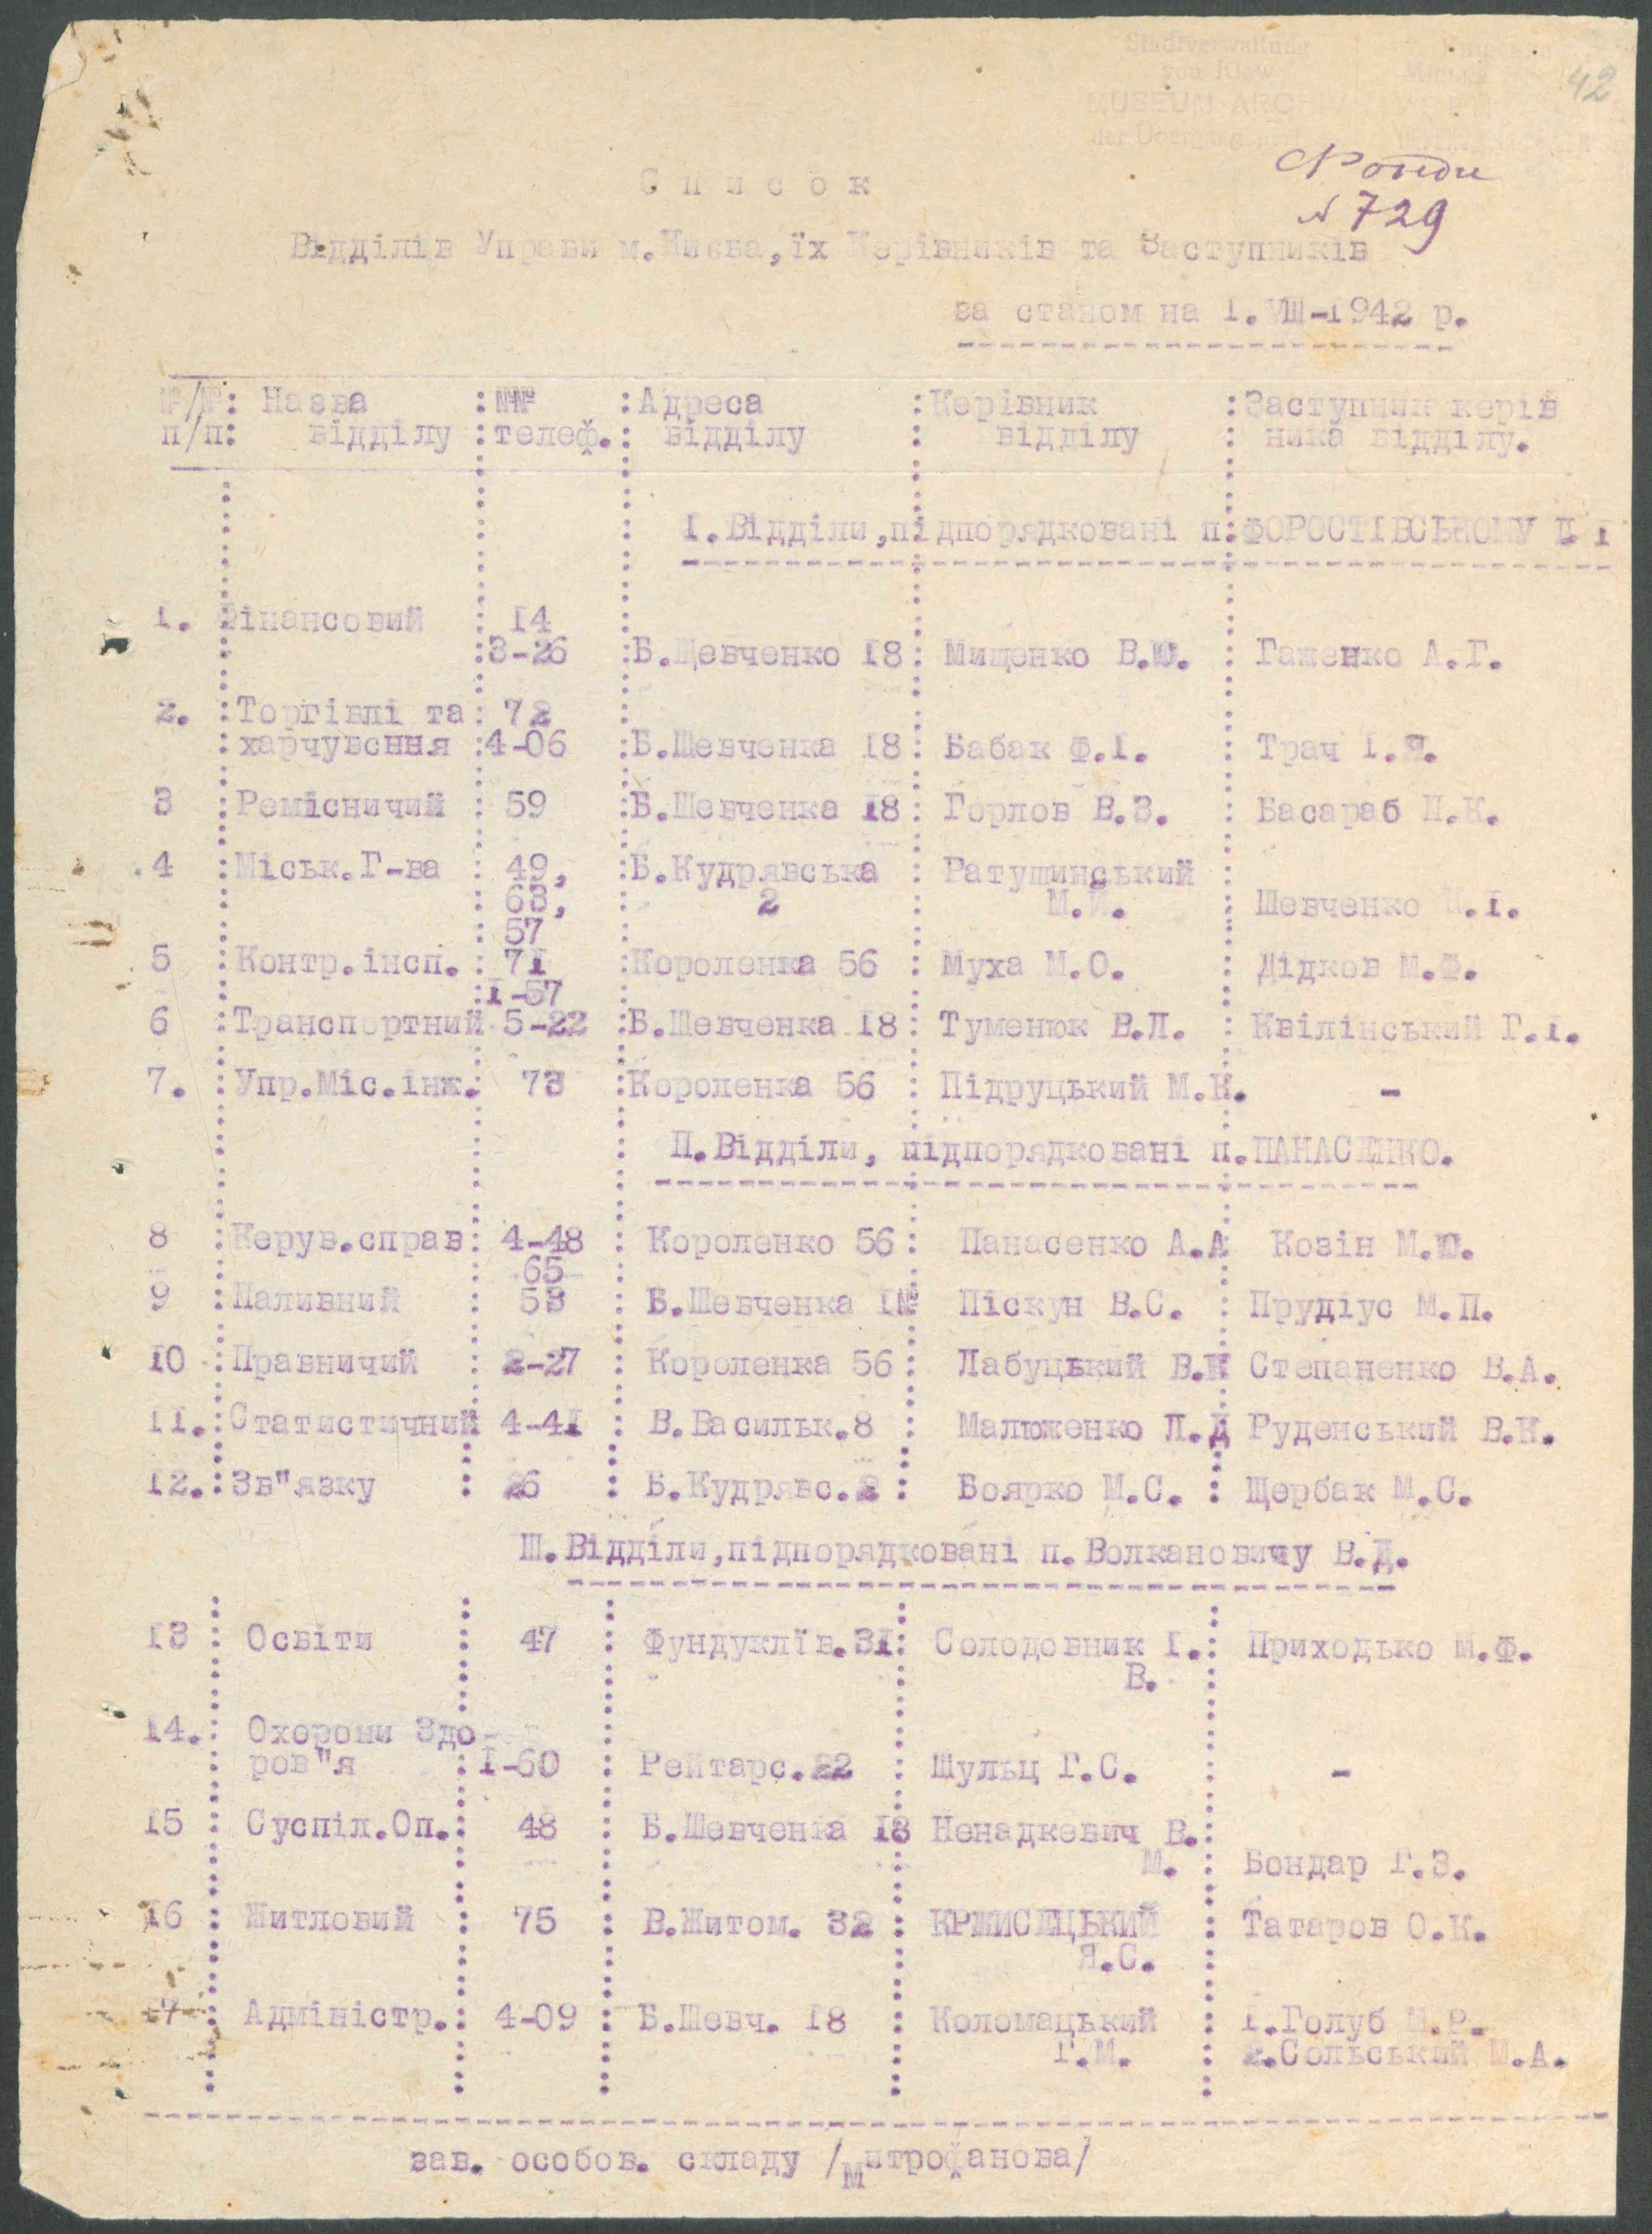 Stadtverwaltung
von Kiew
MUSEUM-ARCHIV
42
Фонди
№ 729
Список
Відділів Управи м.Києва,їх Керівників та Заступників
за станом на І.VШ-І942 р.
№/№: Назва :№№ :Адреса :Керівник :Заступник керів
п/п: відділу :телеф.: відділу : відділу : ника відділу.
І.Відділи,підпорядковані п.ФОРОСТІВСЬКОМУ Л І
І. Фінансовий І4
:3-26 :Б.Шевченко І8: Мищенко В.Ю. : Гаженко А.Г.
2. :Торгівлі та: 72
:харчувсння :4-06 :Б.Шевченка І8: Бабак Ф.І. : Трач І.Я.
3 :Ремісничий : 59 :Б.Шевченка І8: Горлов В.З. : Басараб П.К.
4 :Міськ.Г-ва : 49, :Б.Кудрявська : Ратушинський
: 63, : 2 : М.Й. : Шевченко І.
: 57
5 :Контр.інсп. : 7І :Короленка 56 : Муха М.О. : Дідков М.Ф.
:І-57
6 :Транспортний 5-22 :Б.Шевченка І8: Туменюк В.Л. : Квілінський Г.І.
7. :Упр.Міс.інж.: 73 :Короленка 56 : Підруцький М.К. -
П.Відділи, підпорядковані п.ПАНАСЕНКО.
8 :Керув.справ: 4-48 : Короленко 56: Панасенко А.А Козін М.Ю.
: 65
9 :Паливний : 53 : Б.Шевченка І№ Піскун В.С. : Прудіус М.П.
ІО :Правничий : 2-27 : Короленка 56: Лабуцький В. Степаненко В.А.
ІІ.:Статистичний 4-4І : В.Васильк.8 : Малюженко Л.Д Руденський В.К.
І2.:Зв"язку : 26 : Б.Кудрявс.2 : Боярко М.С. : Щербак М.С.
Ш.Відділи,підпорядковані п.Волкановичу В.Д.
І3 : Освіти : 47 : Фундуклїв.3І: Солодовник І.: Приходько М.Ф.
В.
І4.: Охорони Здо
: ров"я :І-60 : Рейтарс.22 : Шульц Г.С. : -
І5 : Суспіл.Оп.: 48 : Б.Шевченка І8 Ненадкевич В.:
М. : Бондар Г.З.
І6 : Житловий : 75 : В.Житом. 32 : КРЖИСЕЦЬКИЙ : Татаров О.К.
Я.С.
І7 : Адміністр.: 4-09 : Б.Шевч. І8 : Коломацький : І.Голуб М.Р.
: Г.М. : 2.Сольський М.А.
зав. особов. складу /Митрофанова/